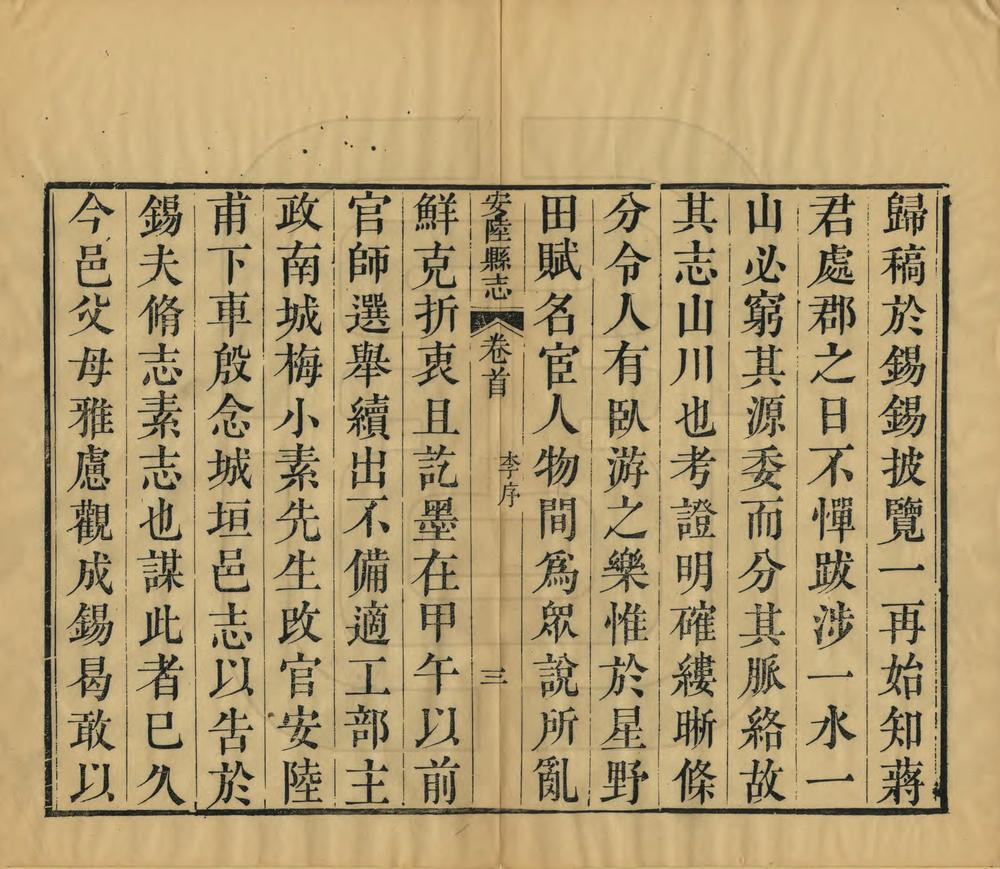 歸稿於錫錫披覽一再始知蔣
君處郡之日不憚跋涉一水一
山必窮其源委而分其脈絡故
其志山川也考證明確縷晰條
分令人有臥游之樂惟於星野
田賦名宦人物間爲眾說所亂
安陸縣志 卷首 李序 三
鮮克折衷且訖墨在甲午以前
官師選舉續出不備適工部主
政南城梅小素先生改官安陸
甫下車殷念城垣邑志以告於
錫夫脩志素志也謀此者已久
今邑父母雅慮觀成錫曷敢以